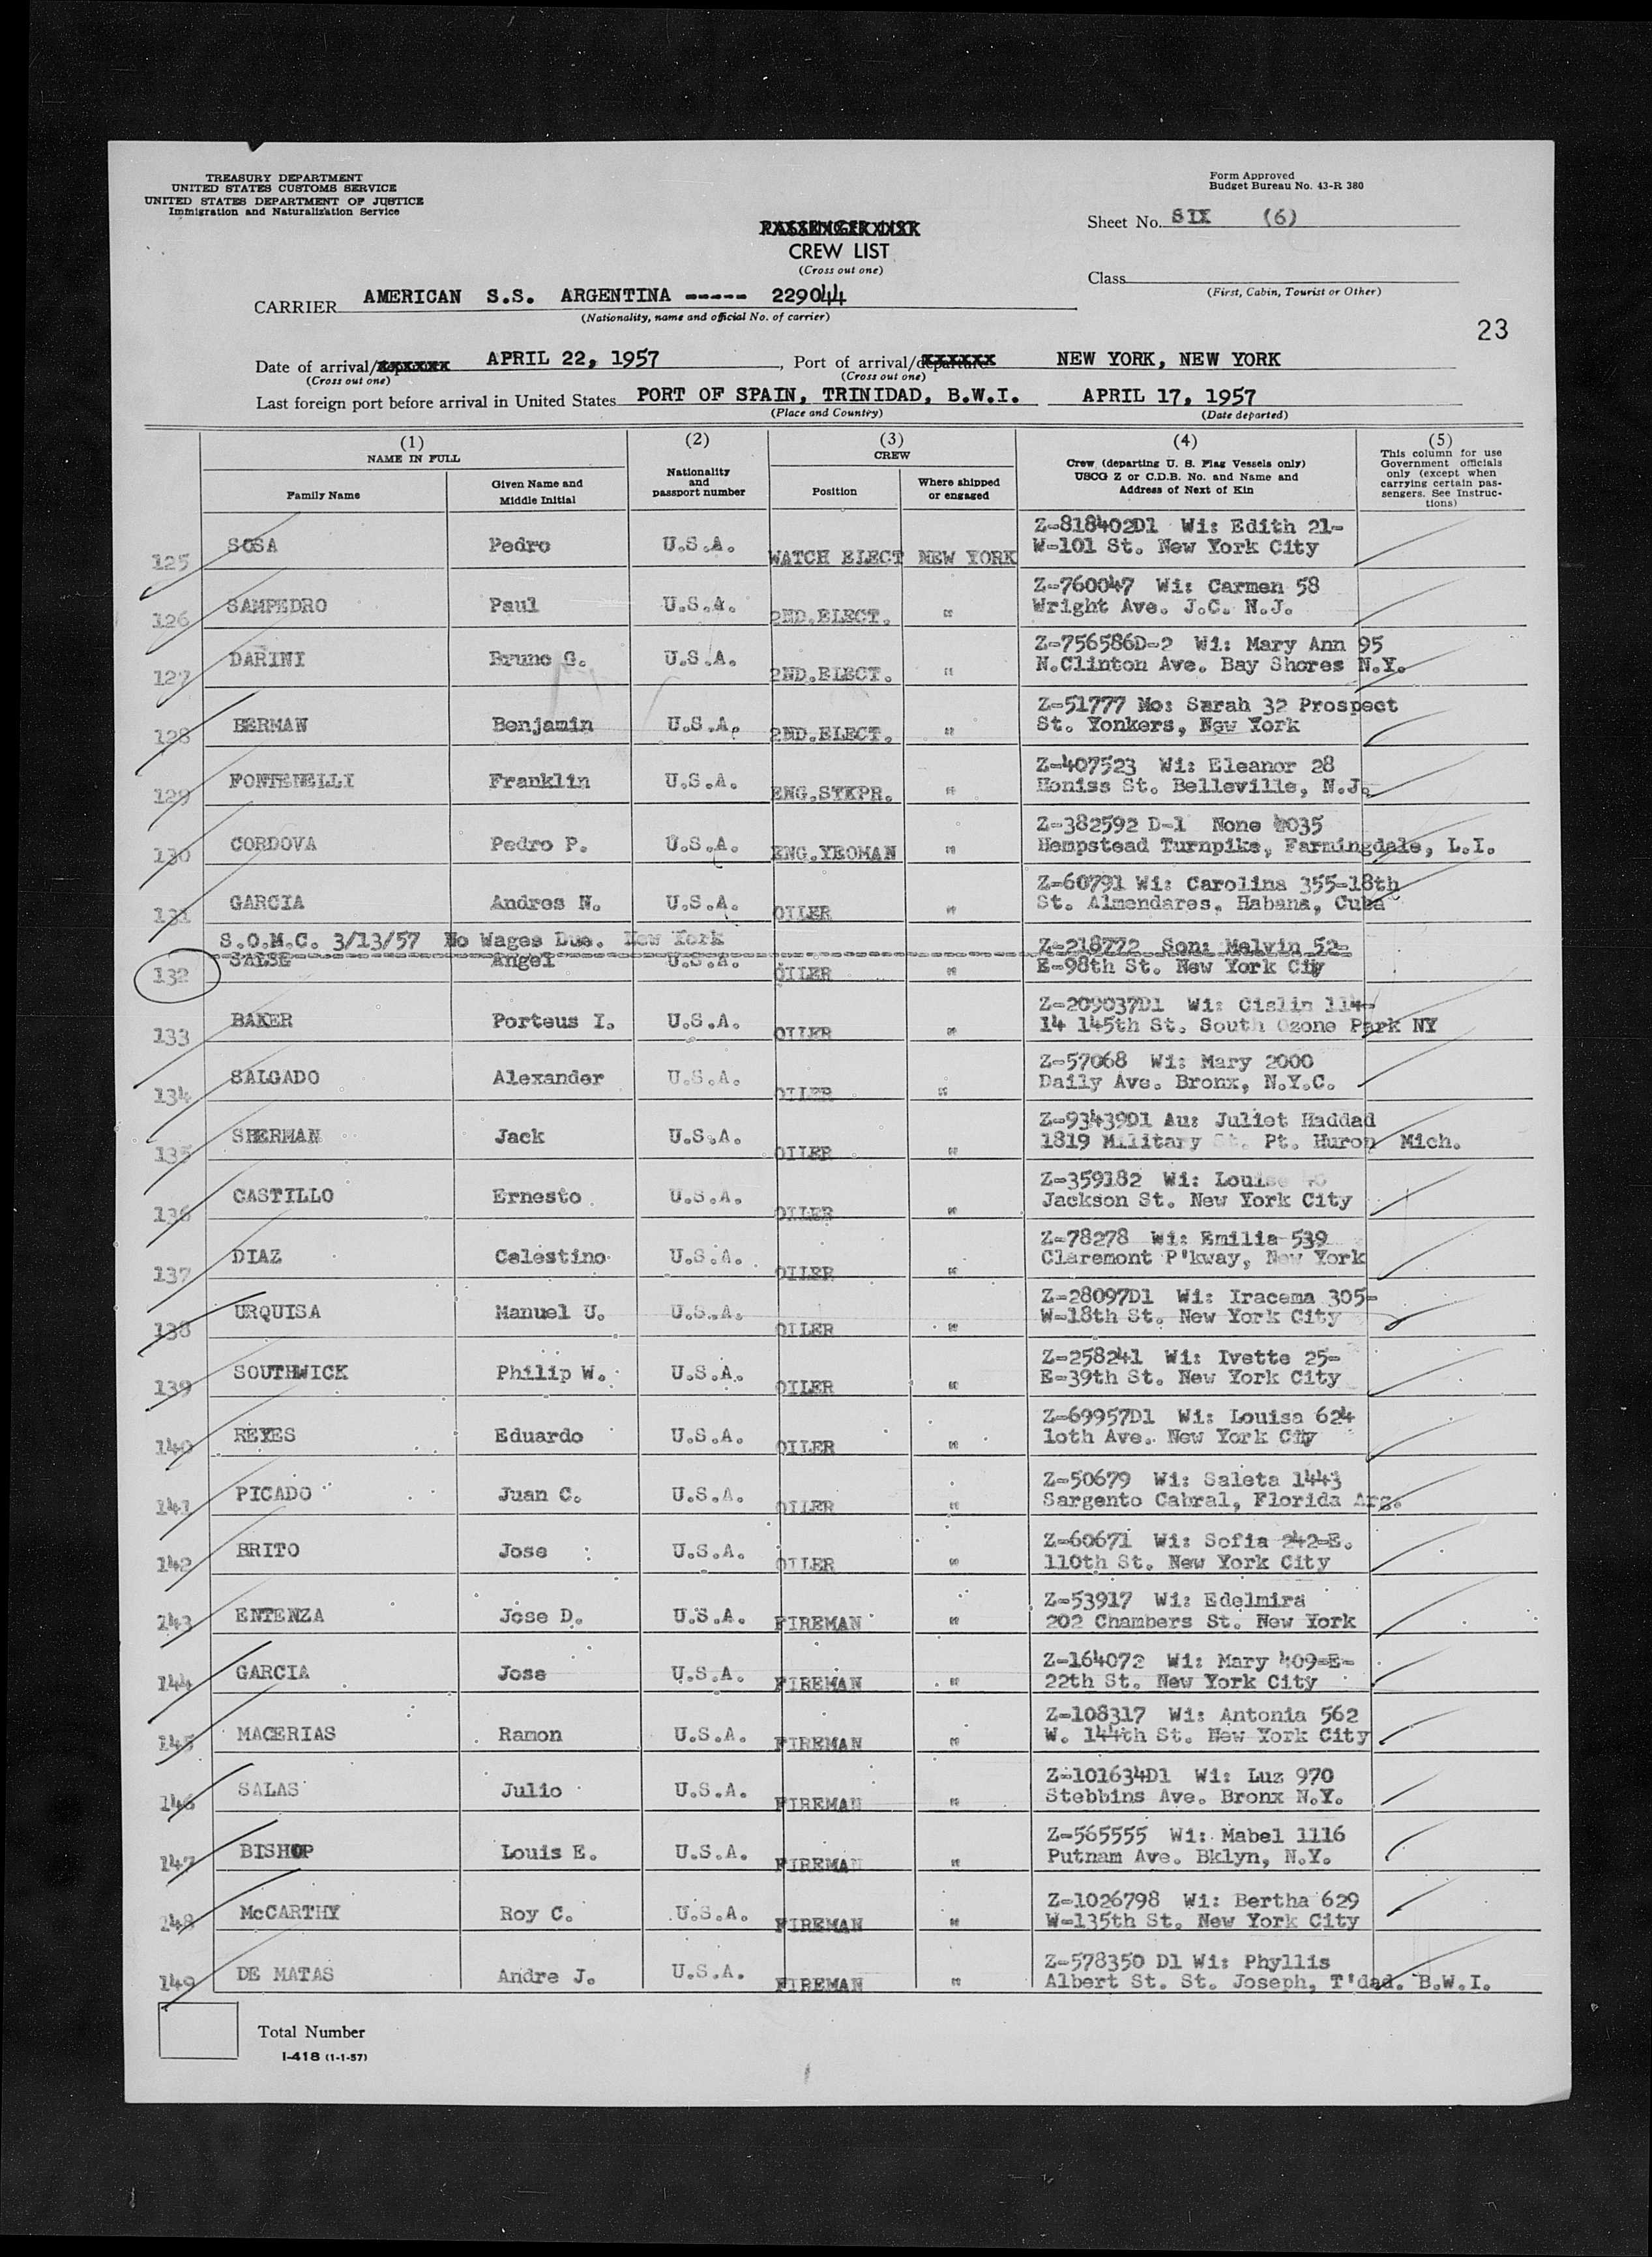 TREASURY DEPARTMENT
UNITED STATES CUSTOMS SERVICE
UNITED STATES DEPARTMENT OF JUSTICE
Immigration and Naturalization Service
Form Approved
Budget Bureau No. 43-R 380
Sheet No. SIX (6)
PASSENGER LIST
CREW LIST
(Cross out one)
Class
(First, Cabin, Tourist or Other)
CARRIER AMERICAN S.S. ARGENTINA ----- 229044
(Nationality, name and official No. of carrier)
23
Date of arrival/ APRIL 22, 1957, Port of arrival/departure NEW YORK, NEW YORK
(Cross out one) (Cross out one)
Last foreign port before arrival in United States PORT OF SPAIN, TRINIDAD, B.W.I. APRIL 17, 1957
(Place and Country) (Date departed)
(1) (2) (3) (4) (5)
NAME IN FULL
Family Name
Given Name and Middle Initial
Nationality and passport number
CREW
Position
Where shipped or engaged
Crew (departing U. S. Flag Vessels only)
USCG Z or C.D.B. No. and Name and
Address of Next of Kin
This column for use
Government officials
only (except when
carrying certain pas-
sengers. See Instruc-
tions)
125 SOSA Pedro U.S.A. WATCH ELECT NEW YORK Z-818402D1 Wi: Edith 21-
W-101 St. New York City
126 SAMPEDRO Paul U.S.A. 2ND.ELECT. " Z-760047 Wi: Carmen 58
Wright Ave. J.C. N.J.
127 DARINI Bruno G. U.S.A. 2ND.ELECT. " Z-756586D-2 Wi: Mary Ann 95
N.Clinton Ave. Bay Shores N.Y.
128 BERMAN Benjamin U.S.A. 2ND.ELECT. " Z-51777 Mo: Sarah 32 Prospect
St. Yonkers, New York
129 FONTENELLI Franklin U.S.A. ENG.STKPR. " Z-407523 Wi: Eleanor 28
Honiss St. Belleville, N.J.
130 CORDOVA Pedro P. U.S.A. ENG.YEOMAN " Z-382592 D-1 None
Hempstead Turnpike, Farmingdale, L.I.
131 GARCIA Andres N. U.S.A. OILER " Z-60791 Wi: Carolina 355-18th
St. Almendares, Habana, Cuba
S.O.M.C. 3/13/57 No Wages Due. New York
132 SALSE Angel U.S.A. OILER " Z-218772 Son: Melvin 52-
E-98th St. New York City
133 BAKER Porteus I. U.S.A. OILER " Z-209037D1 Wi: Cislin 114-
14 145th St. South Ozone Park NY
134 SALGADO Alexander U.S.A. OILER " Z-57068 Wi: Mary 2000
Daily Ave. Bronx, N.Y.C.
135 SHERMAN Jack U.S.A. OILER " Z-93439D1 Au: Juliet Haddad
1819 Military St. Pt. Huron Mich.
136 CASTILLO Ernesto U.S.A. OILER " Z-359182 Wi: Louise
Jackson St. New York City
137 DIAZ Celestino U.S.A. OILER " Z-78278 Wi: Emilia 539
Claremont P'kway, New York
138 URQUISA Manuel U. U.S.A. OILER " Z-28097D1 Wi: Iracema 305-
W-18th St. New York City
139 SOUTHWICK Philip W. U.S.A. OILER " Z-258241 Wi: Ivette 25-
E-39th St. New York City
140 REYES Eduardo U.S.A. OILER " Z-69957D1 Wi: Louisa 624
10th Ave. New York City
141 PICADO Juan C. U.S.A. OILER " Z-50679 Wi: Saleta 1443
Sargento Cabral, Florida Arg.
142 BRITO Jose U.S.A. OILER " Z-60671 Wi: Sofia 242-E.
110th St. New York City
143 ENTENZA Jose D. U.S.A. FIREMAN " Z-53917 Wi: Edelmira
202 Chambers St. New York
144 GARCIA Jose U.S.A. FIREMAN " Z-164072 Wi: Mary 409-E-
22th St. New York City
145 MACERIAS Ramon U.S.A. FIREMAN " Z-108317 Wi: Antonia 562
W. 144th St. New York City
146 SALAS Julio U.S.A. FIREMAN " Z-101634D1 Wi: Luz 970
Stebbins Ave. Bronx N.Y.
147 BISHOP Louis E. U.S.A. FIREMAN " Z-565555 Wi: Mabel 1116
Putnam Ave. Bklyn, N.Y.
148 McCARTHY Roy C. U.S.A. FIREMAN " Z-1026798 Wi: Bertha 629
W-135th St. New York City
149 DE MATAS Andre J. U.S.A. FIREMAN " Z-578350 D1 Wi: Phyllis
Albert St. St. Joseph, T'dad. B.W.I.
Total Number
I-418 (1-1-57)